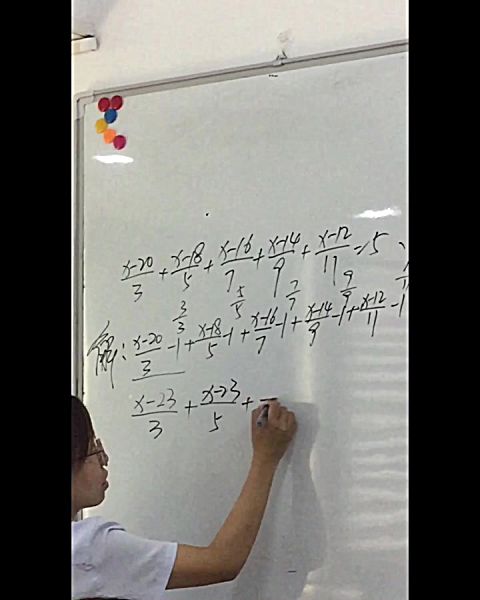 x-20/3 + x-18/5 + x-16/7 + x-14/9 + x-12/11 = 5
3/3 5/5 7/7 9/9
解: x-20/3 -1 + x-18/5 -1 + x-16/7 -1 + x-14/9 -1 + x-12/11 -1
x-23/3 + x-23/5 +